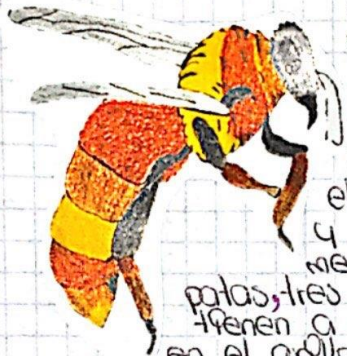 el
y
me
patas, tres
tienen a
en el